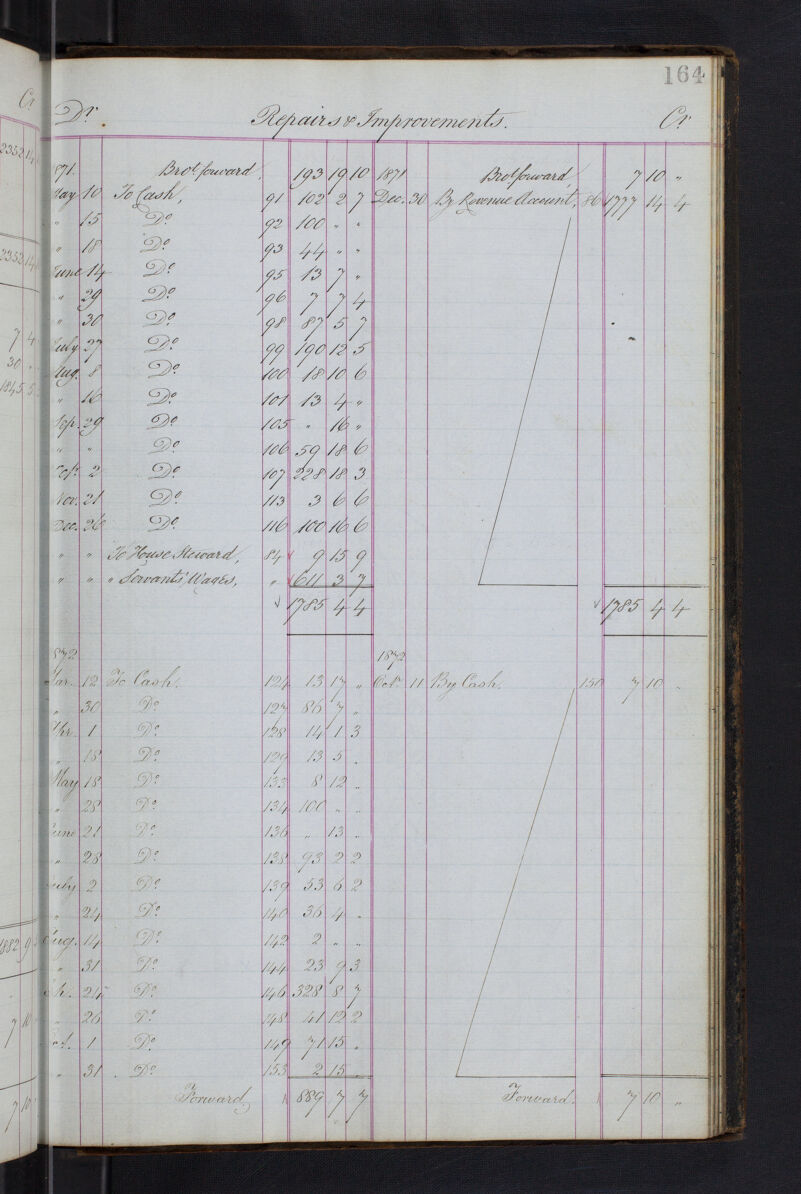 164
Dr. Repairs & Improvements. Cr.
871. Brot. forward, 193 19 10 1871 Brot. forward, 7 10 "
May 10 To Cash, 91 102 2 7 Dec. 30 By Revenue Account, 86 1777 14 4
" 15 Do 92 100 " "
" 18 Do 93 44 " "
June 14 Do 95 13 7 "
" 29 Do 96 7 7 4
" 30 Do 98 87 5 7
July 27 Do 99 190 12 5
Aug. 8 Do 100 18 10 6
" 16 Do 101 13 4 "
Sep. 29 Do 105 " 16 "
" " Do 106 59 18 6
Oct. 2 Do 107 228 18 3
Nov. 21 Do 113 3 6 6
Dec. 26 Do 116 100 16 6
" " To House Steward, 84 9 15 9
" " " Servants' Wages, " 611 3 7
1785 4 4 1785 4 4
872 1872
Mar. 12 To Cash. 124 13 17 " Oct. 11 By Cash. 150 7 10 "
" 30 Do 127 86 7 "
Apr. 1 Do 128 14 1 3
" 18 Do 129 13 5 "
May 18 Do 133 8 12 "
" 28 Do 134 100 " "
June 21 Do 136 " 13 "
" 28 Do 138 93 2 2
July 2 Do 139 53 6 2
" 24 Do 140 36 4 "
Aug. 14 Do 142 2 " "
" 31 Do 144 23 9 3
24 Do 146 328 8 7
" 26 Do 148 41 12 2
1 Do 149 71 15 "
" 31 Do 153 2 15 "
Forward, 889 7 7 Forward. 7 10 "